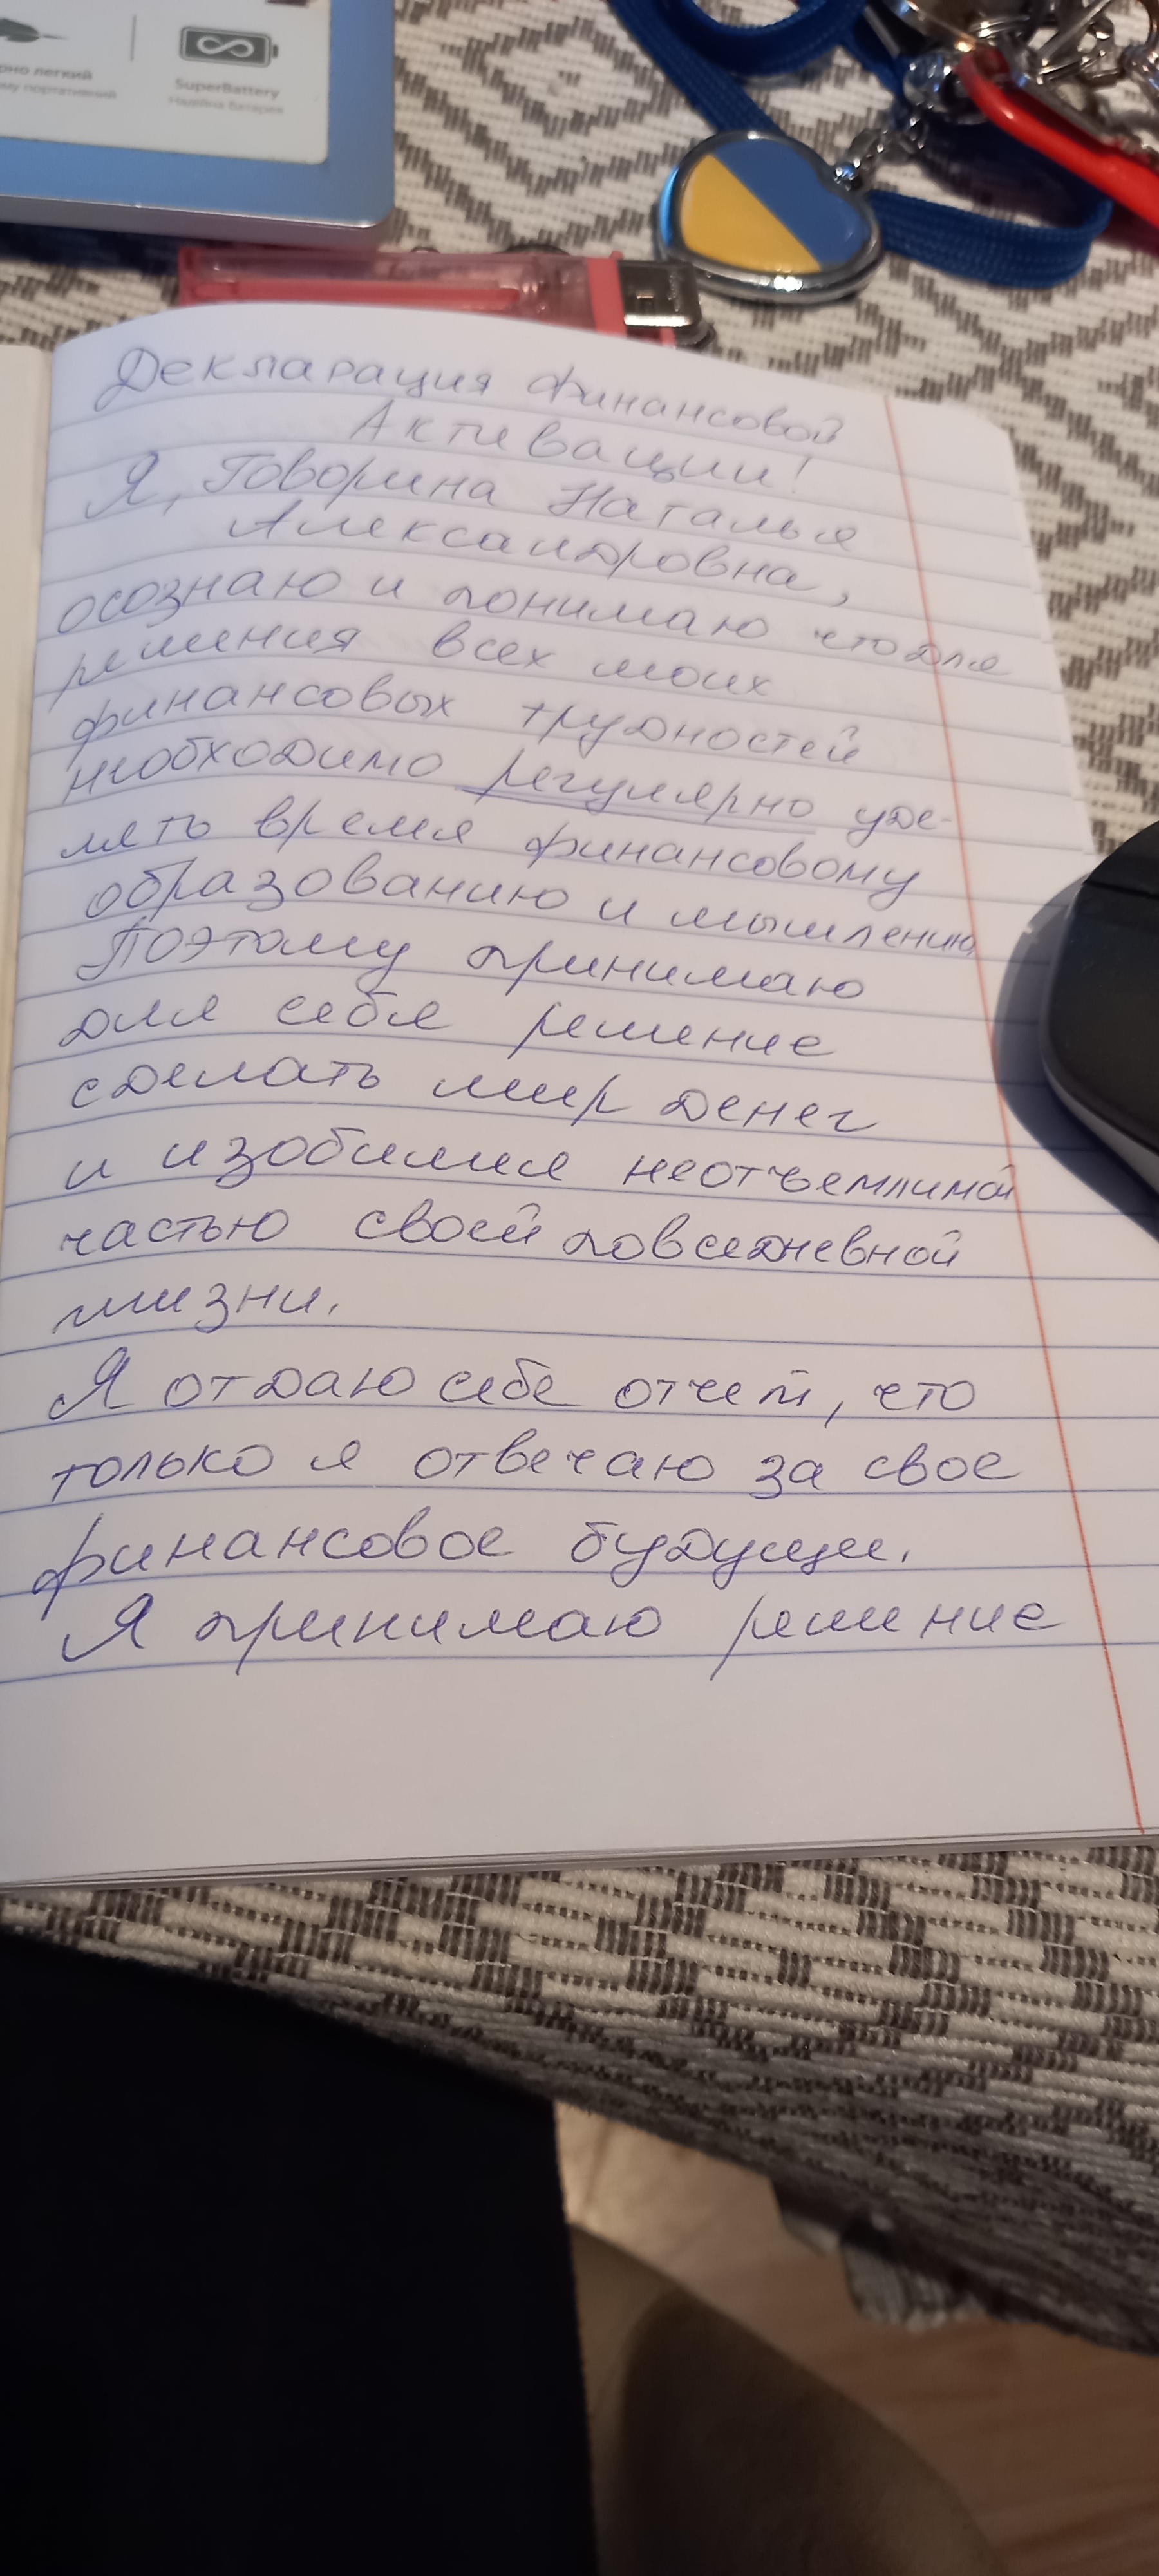 рно легкий
му портативний
SuperBattery
Надійна батарея
Декларация финансовой
Активации!
Я, Говорина Наталья
Александровна,
осознаю и понимаю что для
решения всех моих
финансовых трудностей
необходимо регулярно уде-
лять время финансовому
образованию и мышлению
Поэтому принимаю
для себя решение
сделать мир денег
и изобилия неотъемлимой
частью своей повседневной
жизни.
Я отдаю себе отчет, что
только я отвечаю за свое
финансовое будущее.
Я принимаю решение